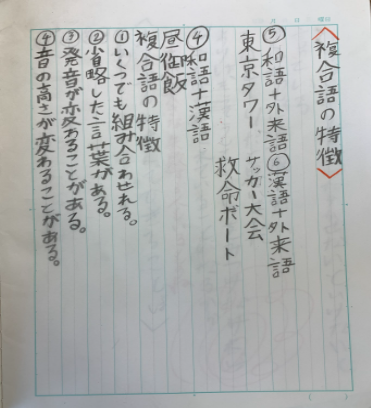 月 日 曜日
〈複合語の特徴〉
⑤和語+外来語 ⑥漢語+外来語
東京タワー サッカー大会
救命ボート
④和語+漢語
昼御飯
複合語の特徴
①いくつでも組み合わせれる。
②省略した言葉がある。
③発音が変わることがある。
④音の高さが変わることがある。